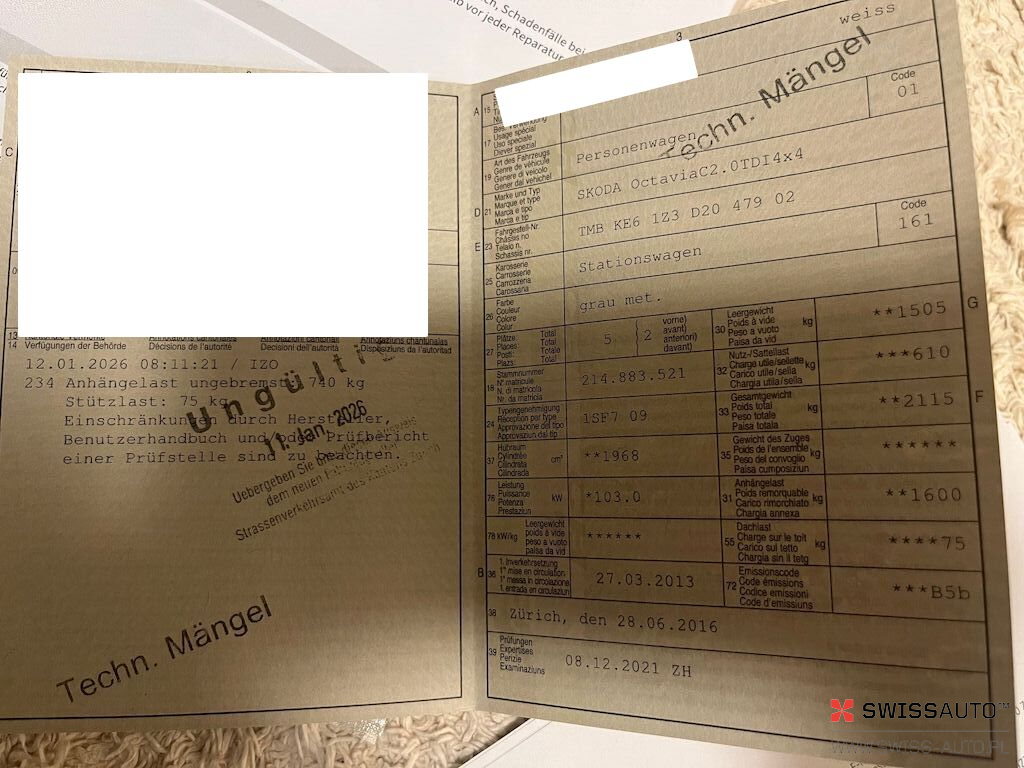 ch, Schadenfälle bei
lb vor jeder Reparatur
C
14 Verfügungen der Behörde Décisions de l'autorité Decisioni dell'autorità Disposiziuns da l'autoritad
12.01.2026 08:11:21 / IZO
234 Anhängelast ungebremst: 740 kg
Stützlast: 75 kg
Einschränkungen durch Hersteller,
Benutzerhandbuch und/oder Prüfbericht
einer Prüfstelle sind zu beachten.
Ungültig
11. Jan. 2026
Uebergeben Sie
dem neuen
Strassenverkehrsamt des Kantons Zürich
Techn. Mängel
3
weiss
Techn. Mängel
A 15
17 Bes. Verwendung
Usage spécial
Uso speciale
Diever spezial
Code
01
19 Art des Fahrzeugs
Genre de véhicule
Genere di veicolo
Gener dal vehichel
Personenwagen
D 21 Marke und Typ
Marque et type
Marca e tipo
Marca e tip
SKODA OctaviaC2.0TDI4x4
E 23 Fahrgestell-Nr.
Châssis no
Telaio n.
Schassis nr.
TMB KE6 1Z3 D20 479 02
25 Karosserie
Carrosserie
Carrozzeria
Carossaria
Stationswagen
Code
161
26 Farbe
Couleur
Colore
Colur
grau met.
27 Plätze: Total
Places Total
Posti: Totale
Plazs: Total
5
2
vorne)
avant)
anteriori)
davant)
30 Leergewicht
Poids à vide
Peso a vuoto
Paisa da vid
kg
**1505
G
18 Stammnummer
N° matricule
N. di matricola
Nr. da matricla
214.883.521
32 Nutz-/Sattellast
Charge utile/sellette
Carico utile/sella
Chargia utila/sella
kg
***610
24 Typengenehmigung
Réception par type
Approvazione del tipo
Approvaziun dal tip
1SF7 09
33 Gesamtgewicht
Poids total
Peso totale
Paisa totala
kg
**2115
F
37 Hubraum
Cylindrée
Cilindrata
Cilindrada
cm³
**1968
35 Gewicht des Zuges
Poids de l'ensemble
Peso del convoglio
Paisa cumposiziun
kg
******
76 Leistung
Puissance
Potenza
Prestaziun
kW
*103.0
31 Anhängelast
Poids remorquable
Carico rimorchiato
Chargia annexa
kg
**1600
78 kW/kg
Leergewicht
poids à vide
peso a vuoto
paisa da vid
******
55 Dachlast
Charge sur le toit
Carico sul tetto
Chargia sin il tetg
kg
****75
B 36 1. Inverkehrsetzung
1re mise en circulation
1a messa in circolazione
1. entrada en circulaziun
27.03.2013
72 Emissionscode
Code émissions
Codice emissioni
Code d'emissiuns
***B5b
38 Zürich, den 28.06.2016
39 Prüfungen
Expertises
Perizie
Examinaziuns
08.12.2021 ZH
SWISSAUTO™
WWW.SWISS-AUTO.PL